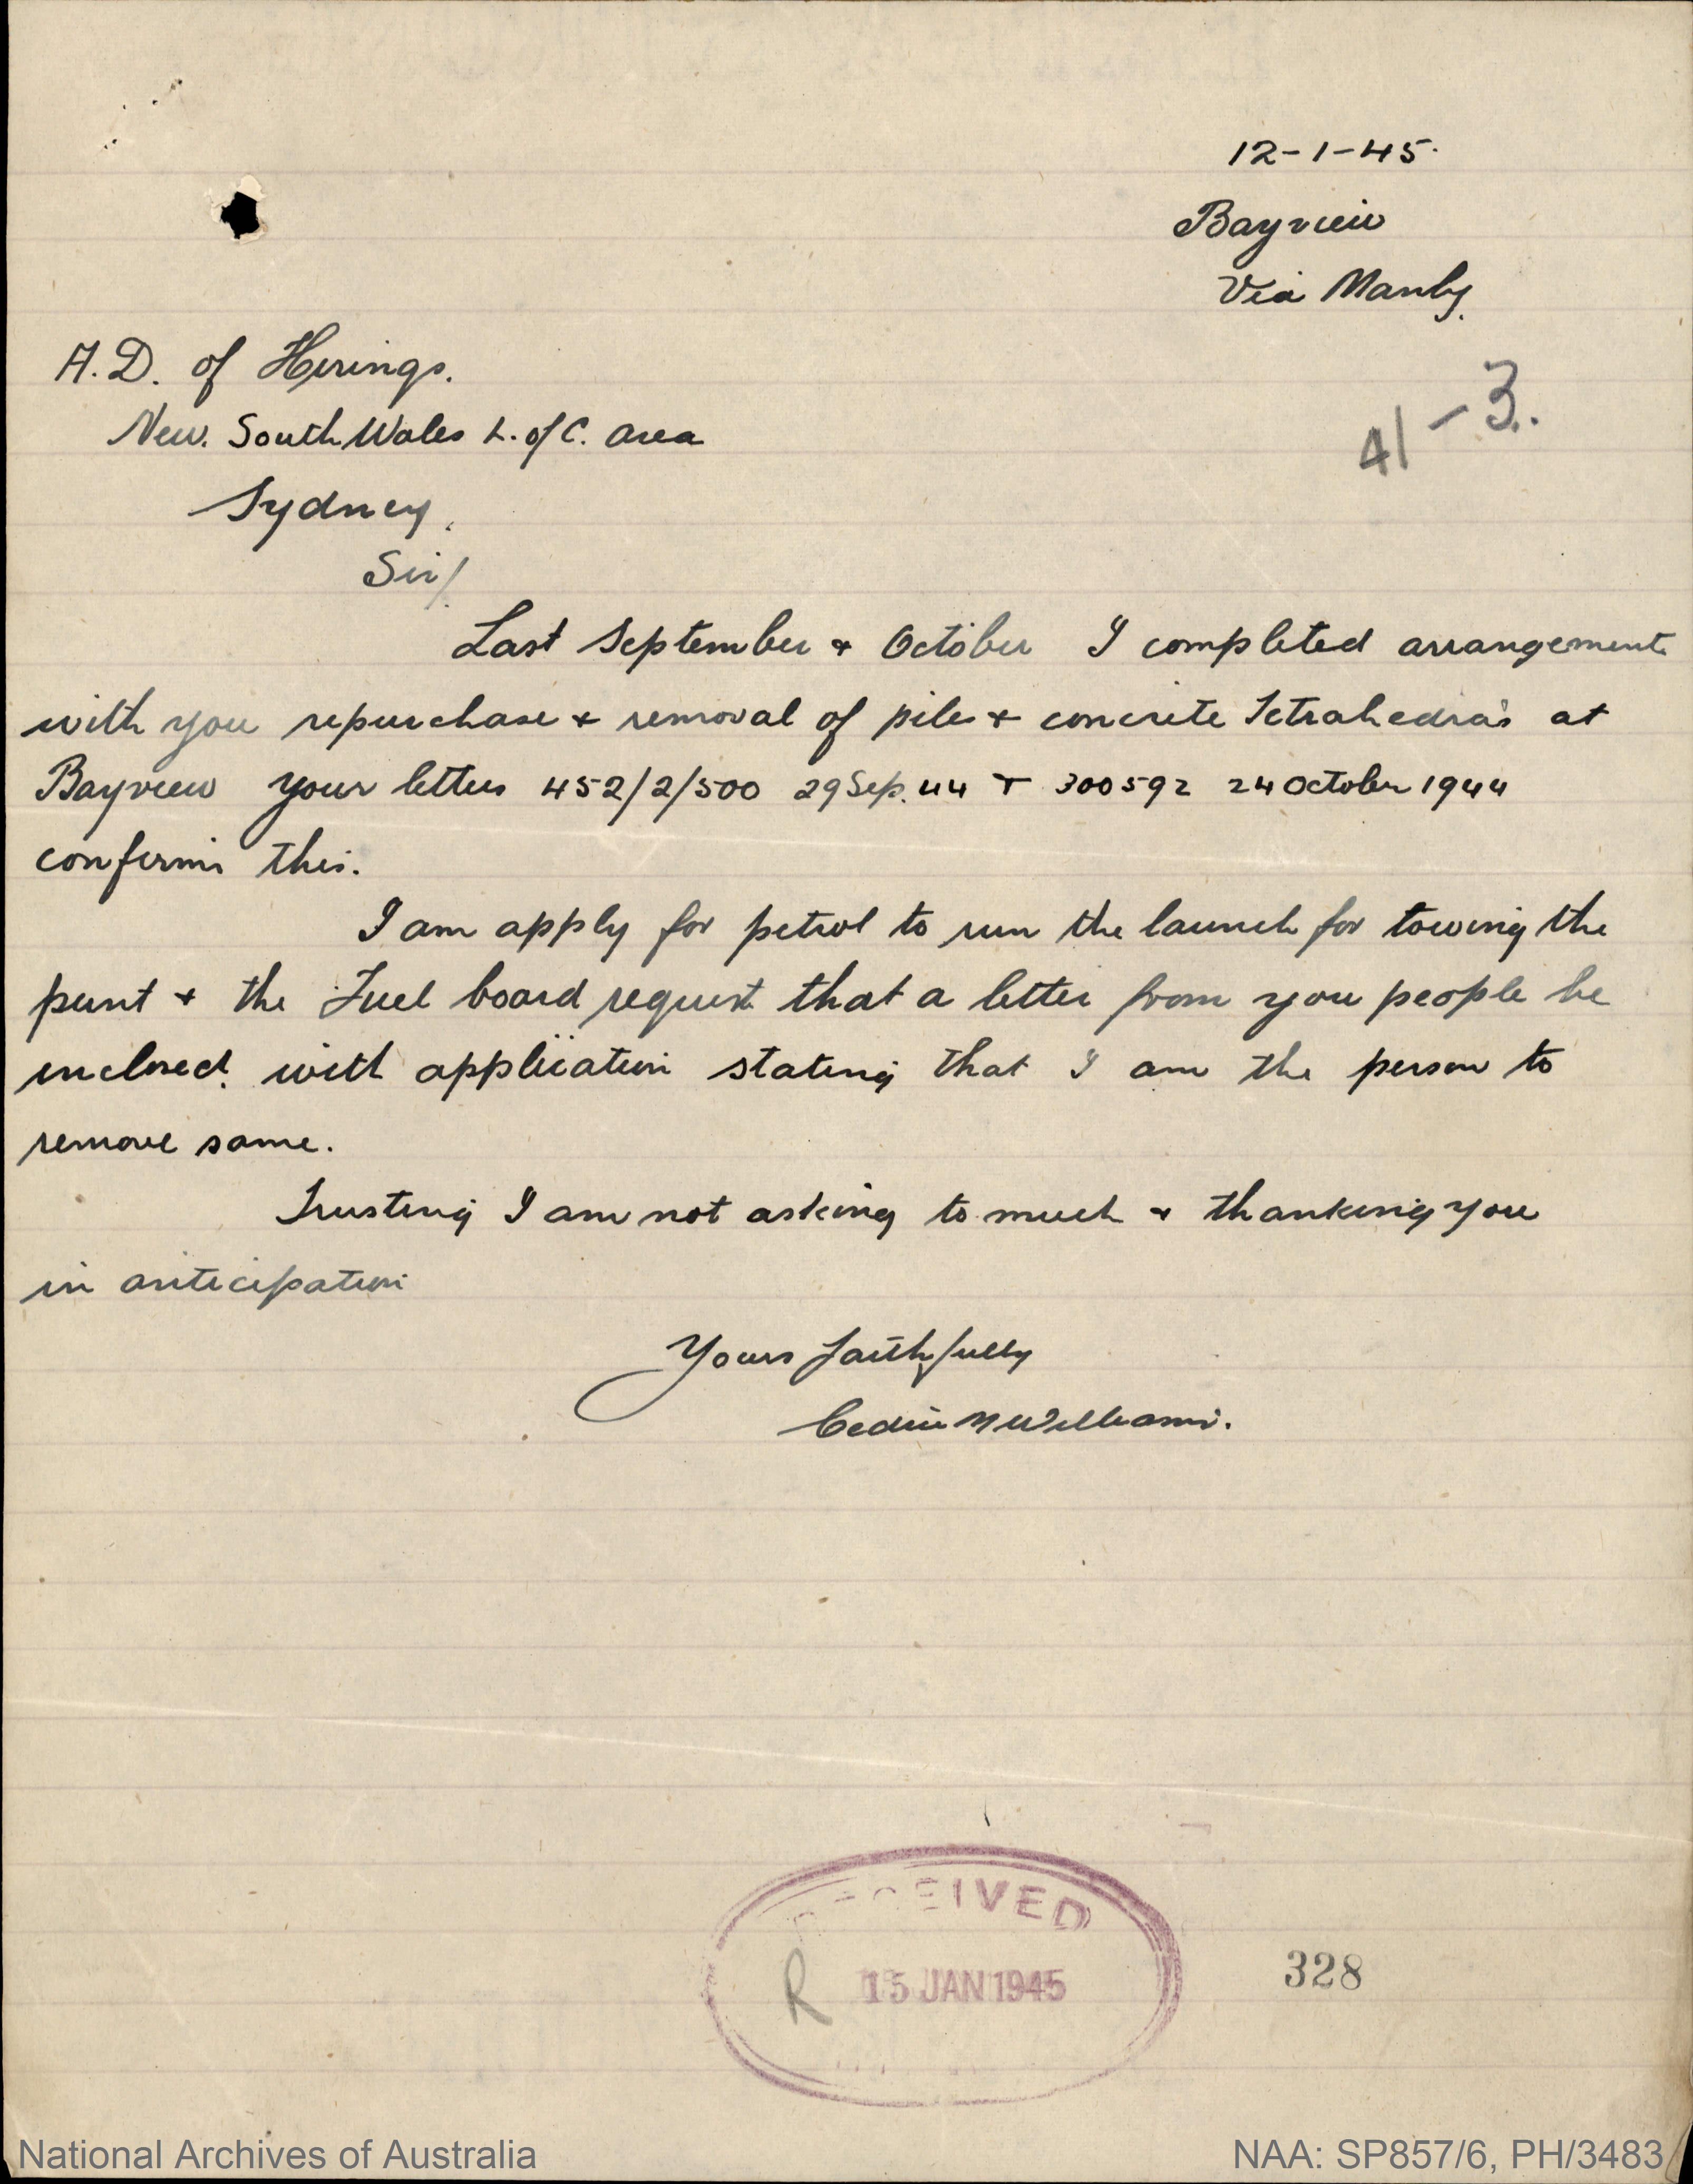 12-1-45.
Bayview
Via Manly.
A.D. of Hirings.
New. South Wales L. of C. area
41-3.
Sydney.
Sir/
Last September & October I completed arrangements
with you repurchase & removal of piles & concrete Tetrahedra's at
Bayview your letters 452/2/500 29 Sep. 44 & 300592 24 October 1944
confirms this.
I am apply for petrol to run the launch for towing the
punt & the Fuel board request that a letter from you people be
inclosed. with application stating that I am the person to
remove same.
Trusting I am not asking to much & thanking you
in anticipation
Yours faithfully
Cedric Williams.
RECEIVED
R 15 JAN 1945
328
National Archives of Australia
NAA: SP857/6, PH/3483